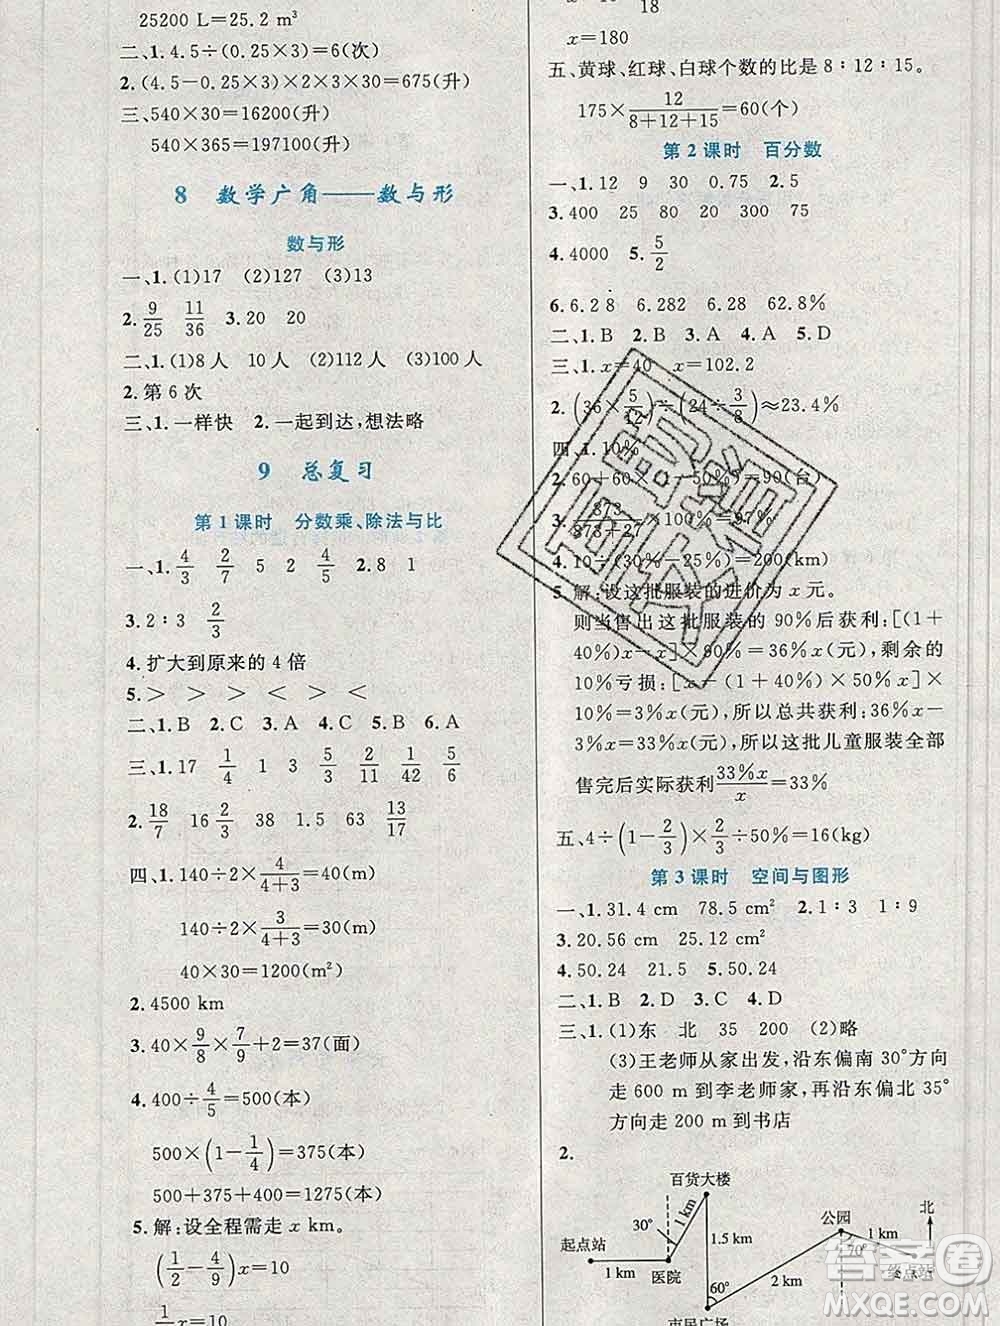 25200 L=25.2 m³
二、1. 4.5÷(0.25×3)=6(次)
2. (4.5-0.25×3)×2×3×30=675(升)
三、540×30=16200(升)
540×365=197100(升)
8 数学广角——数与形
数与形
一、1. (1)17 (2)127 (3)13
2. 9/25 11/36 3. 20 20
二、1. (1)8人 10人 (2)112人 (3)100人
2. 第6次
三、1. 一样快 2. 一起到达,想法略
9 总复习
第1课时 分数乘、除法与比
一、1. 4/3 2/7 5 2 4/5 2. 8 1
3. 2∶3 2/3
4. 扩大到原来的4倍
5. > > < > <
二、1. B 2. C 3. A 4. C 5. B 6. A
三、1. 17 1/4 1 3 3/5 2/11 1/42 5/6
2. 18/7 16 2/3 38 1.5 63 13/17
四、1. 140÷2×4/(4+3)=40(m)
140÷2×3/(4+3)=30(m)
40×30=1200(m²)
2. 4500 km
3. 40×9/8×7/9+2=37(面)
4. 400÷4/5=500(本)
500×(1-1/4)=375(本)
500+375+400=1275(本)
5. 解:设全程需走 x km。
(1/2-4/9)x=10
x=10
18
x=180
五、黄球、红球、白球个数的比是8∶12∶15。
175×12/(8+12+15)=60(个)
第2课时 百分数
一、1. 12 9 30 0.75 2. 5
3. 400 25 80 20 300 75
4. 4000 5. 5/2
6. 6.2̇8̇ 6.282 6.28 62.8%
二、1. B 2. B 3. A 4. A 5. D
三、1. x=40 x=102.2
2. (36×5/12)÷(24÷3/8)≈23.4%
四、1. 10%
2. 60+60×(1-50%)=90(台)
3. 873/(873+27)×100%=97%
4. 10÷(30%-25%)=200(km)
5. 解:设这批服装的进价为 x 元。
则当售出这批服装的90%后获利:[(1+
40%)x-x]×90%=36%x(元),剩余的
10%亏损:[x-(1+40%)×50%x]×
10%=3%x(元),所以总共获利:36%x-
3%x=33%x(元),所以这批儿童服装全部
售完后实际获利33%x/x=33%
五、4÷(1-2/3)×2/3÷50%=16(kg)
第3课时 空间与图形
一、1. 31.4 cm 78.5 cm² 2. 1∶3 1∶9
3. 20.56 cm 25.12 cm²
4. 50.24 21.5 5. 50.24
二、1. B 2. D 3. C 4. D
三、1. (1)东 北 35 200 (2)略
(3)王老师从家出发,沿东偏南30°方向
走600 m到李老师家,再沿东偏北35°
方向走200 m到书店
2.
百货大楼
30°
1 km
1.5 km
起点站
1 km
医院
60°
市民广场
2 km
公园
70°
1 km
北
终点站
答案圈
MXQE.COM